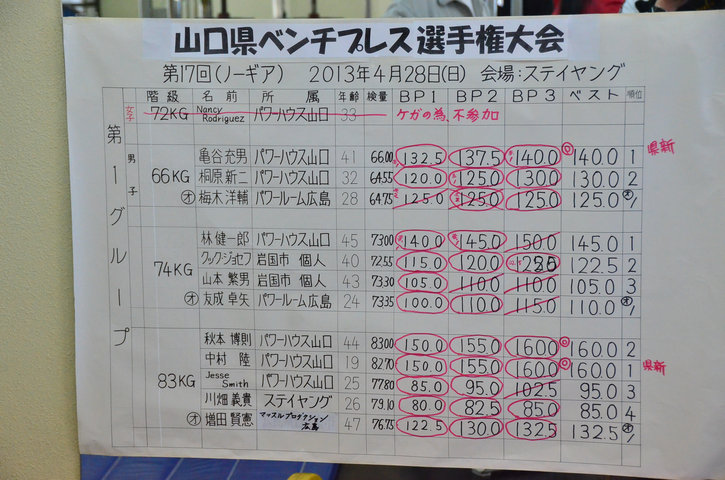 山口県ベンチプレス選手権大会
第17回(ノーギア) 2013年4月28日(日) 会場:ステイヤング
階級 名前 所属 年齢 検量 BP1 BP2 BP3 ベスト 順位
第1グループ
女子 72KG Nancy Rodriguez パワーハウス山口 33 ケガの為、不参加
男子
66KG
亀谷充男 パワーハウス山口 41 66.00 132.5 137.5 140.0 ◎140.0 1 県新
桐原新二 パワーハウス山口 32 64.55 120.0 125.0 130.0 130.0 2
オ 梅木洋輔 パワールーム広島 28 64.75 125.0 125.0 125.0 125.0 オ/1
74KG
林 健一郎 パワーハウス山口 45 73.00 140.0 145.0 150.0 145.0 1
クック・ジョセフ 岩国市 個人 40 72.55 115.0 120.0 122.5 2
山本 繁男 岩国市 個人 43 73.30 105.0 110.0 110.0 105.0 3
オ 友成 卓矢 パワールーム広島 24 73.35 100.0 110.0 115.0 110.0 オ/1
83KG
秋本 博則 パワーハウス山口 44 83.00 150.0 155.0 160.0 ◎160.0 2
中村 陸 パワーハウス山口 19 82.70 150.0 155.0 160.0 ◎160.0 1 県新
Jesse Smith パワーハウス山口 25 77.80 85.0 95.0 102.5 95.0 3
川畑 義貴 ステイヤング 26 79.10 80.0 82.5 85.0 85.0 4
オ 増田 賢憲 マッスルプロダクション広島 47 76.75 122.5 130.0 132.5 132.5 オ/1